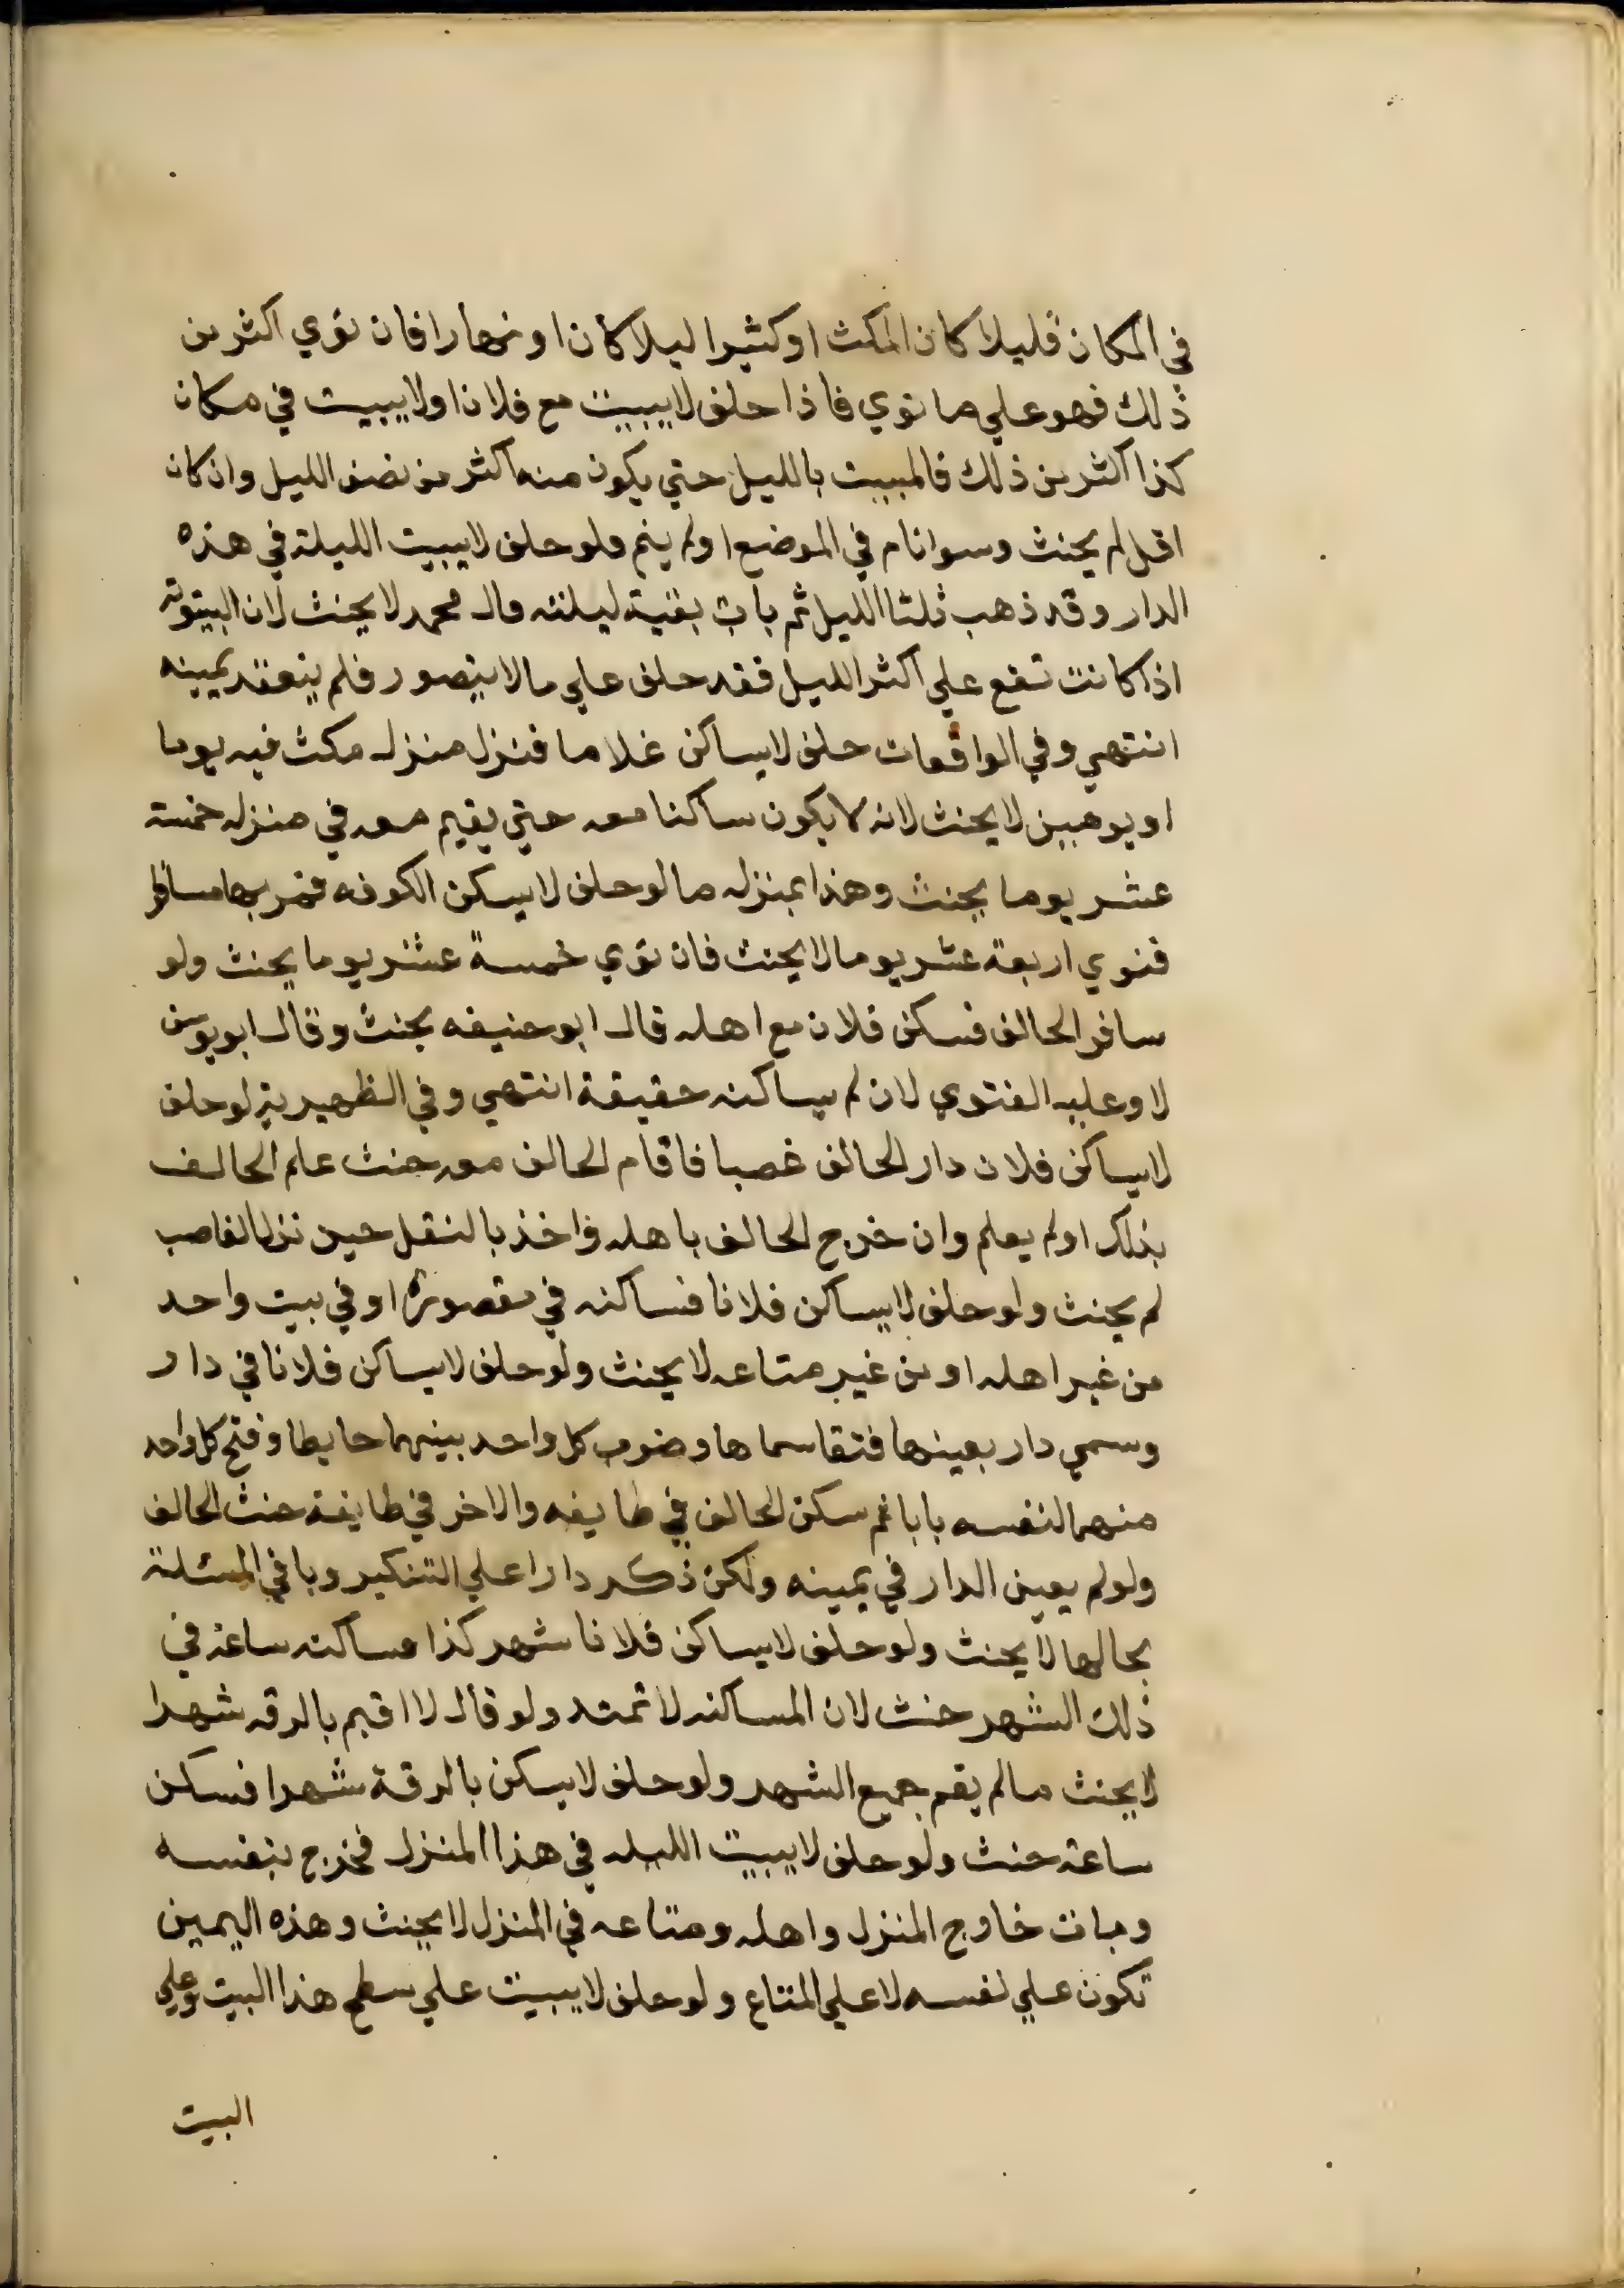 في المكان قليلا كان المكث او كثيرا ليلا كان او نهارا فان نوي اكثر من
ذلك فهو علي ما نوي فاذا حلف لا يبيت مع فلان او لا يبيت في مكان
كذا اكثر من ذلك فالمبيت بالليل حتي يكون منه اكثر من نصف الليل وان كان
اقل لم يحنث وسوا نام في الموضع او لم ينم ولو حلف لا يبيت الليلة في هذه
الدار وقد ذهب ثلثا الليل ثم بات بقية ليلته قال محمد لا يحنث لان البيتوتة
اذا كانت تقع علي اكثر الليل فقد حلف علي ما لا يتصور فلم ينعقد يمينه
انتهي وفي الواقعات حلف لا يساكن غلاما فنزل منزله مكث فيه يوما
او يومين لا يحنث لانه لا يكون ساكنا معه حتي يقيم معه في منزله خمسة
عشر يوما يحنث وهذا بمنزله ما لو حلف لا يسكن الكوفه فمر بها مسافرا
فنوي اربعة عشر يوما لا يحنث فان نوي خمسة عشر يوما يحنث ولو
سافر الحالف فسكن فلان مع اهله قال ابو حنيفه يحنث وقال ابو يوسف
لا وعليه الفتوي لان لم يساكنه حقيقة انتهي وفي الظهيرية لو حلف
لا يساكن فلان دار الحالف غصبا فاقام الحالف معه حنث علم الحالف
بذلك او لم يعلم وان خرج الحالف باهله واخذ بالنقل حين نزل الغاصب
لم يحنث ولو حلف لا يساكن فلانا فساكنه في مقصورة او في بيت واحد
من غير اهله او من غير متاعه لا يحنث ولو حلف لا يساكن فلانا في دار
وسمي دار بعينها فتقاسماها وضرب كل واحد بينهما حايطا وفتح كل واحد
منهما لنفسه بابا ثم سكن الحالف في طايفه والاخر في طايفة حنث الحالف
ولو لم يعين الدار في يمينه ولكن ذكر دارا علي التنكير وباقي المسئلة
بحالها لا يحنث ولو حلف لا يساكن فلانا شهر كذا فساكنه ساعة في
ذلك الشهر حنث لان المساكنه لا تمتد ولو قال لا اقيم بالرقه شهرا
لا يحنث ما لم يقم جميع الشهر ولو حلف لا يسكن بالرقة شهرا فسكن
ساعة حنث ولو حلف لا يبيت الليله في هذا المنزل فخرج بنفسه
وبات خارج المنزل واهله ومتاعه في المنزل لا يحنث وهذه اليمين
تكون علي نفسه لا علي المتاع ولو حلف لا يبيت علي سطح هذا البيت وعلي
البيت